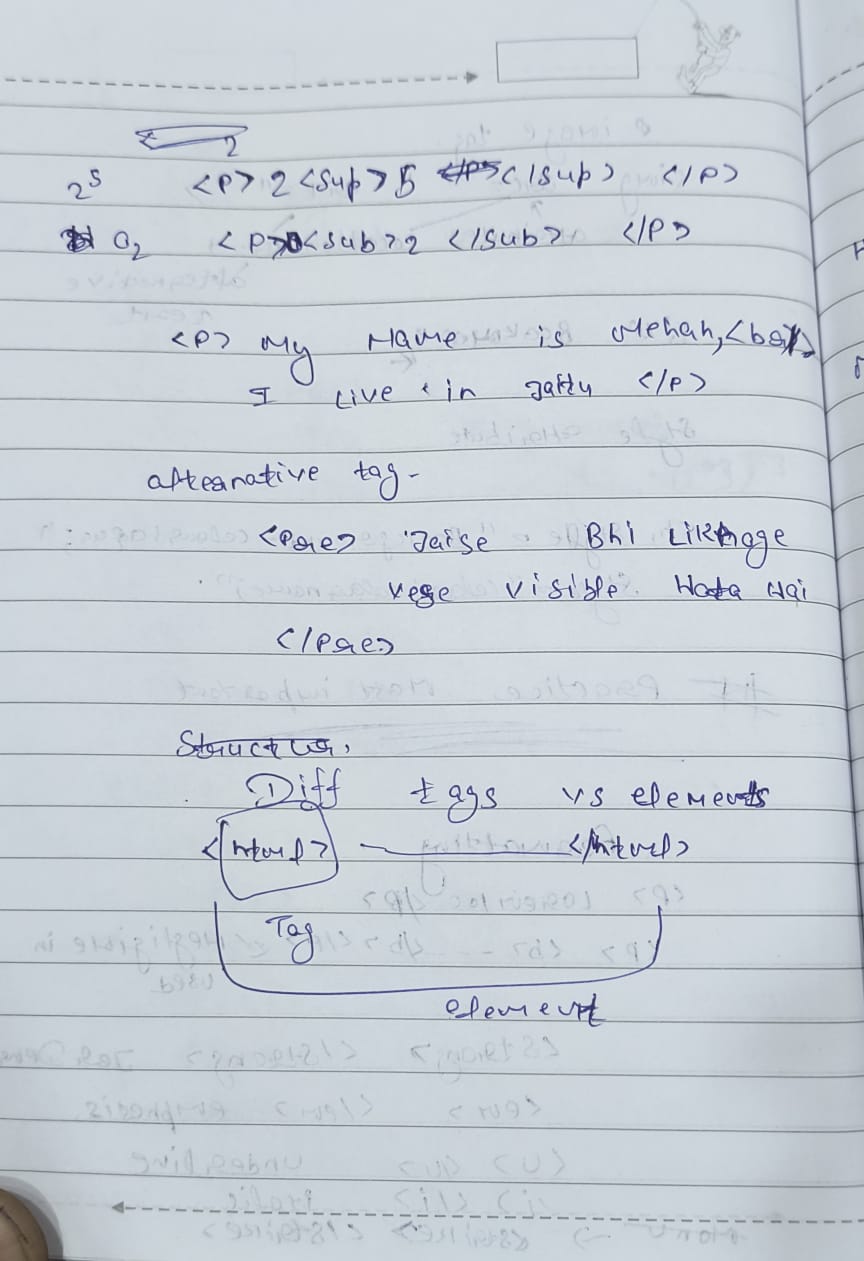 2
2⁵ <P> 2 <Sup> 5 </Sup> </P>
O₂ <P>O<sub>2 </Sub> </P>
<P> My Name is Mehah,<br>
I Live in </P>
alternative tag-
<Pre> Jaise Bhi Likhoge
vese visible Hota Hai
</Pre>
Structur,
Diff tags vs elements
<html> </html>
Tag
element